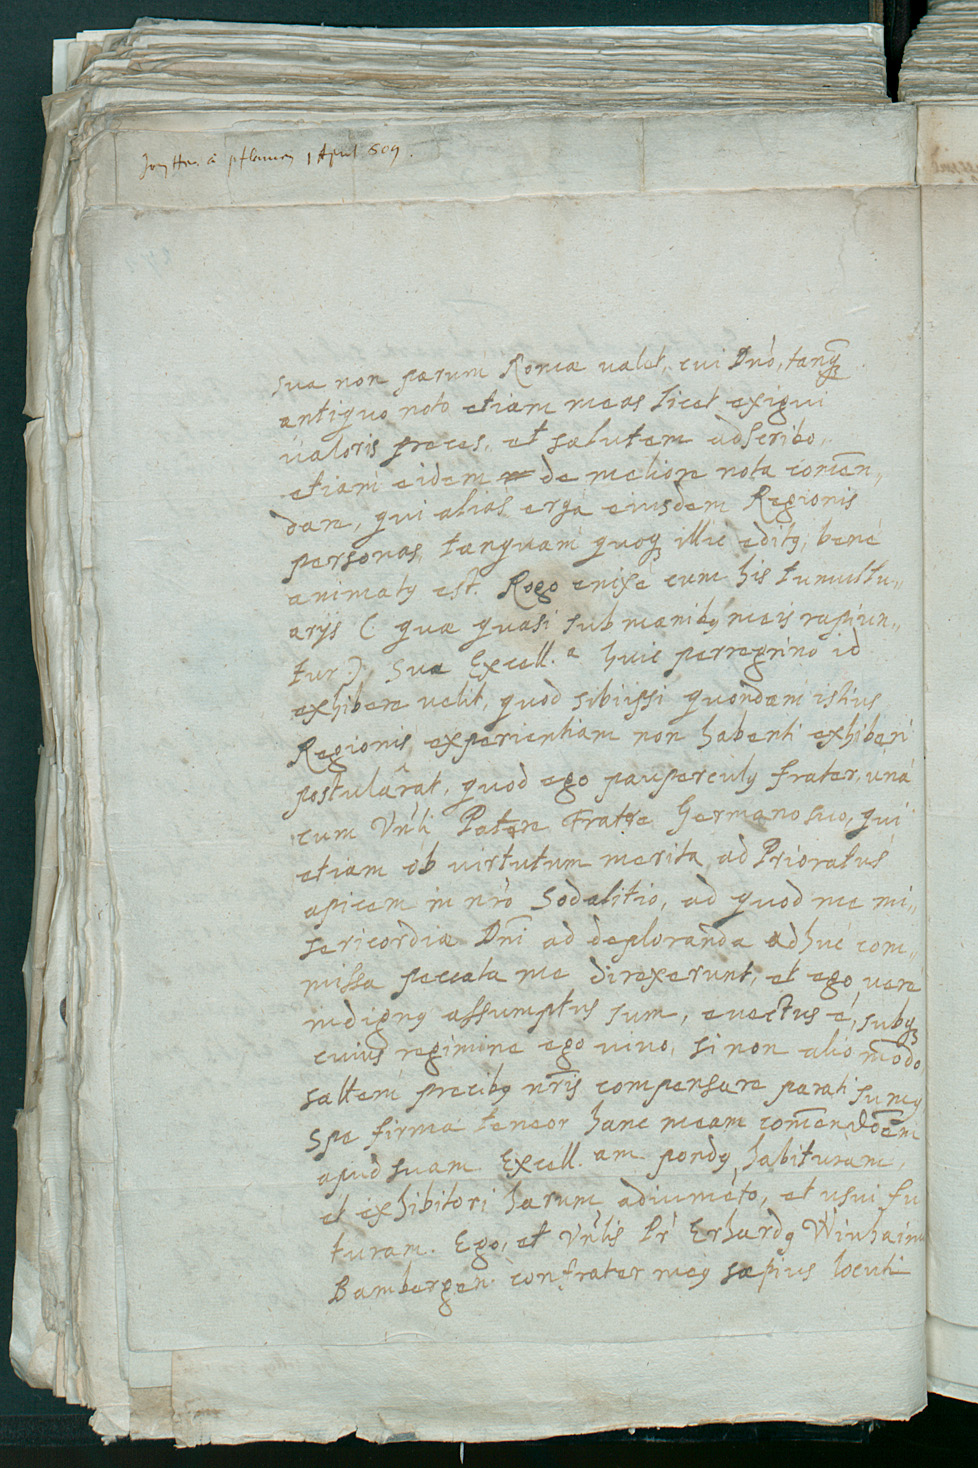 à pflaumen 1 April 609.
sua non parum Romæ valet, cui Dnō, tanq̃
antiquo noto etiam meas licet exigui
valoris preces, et salutem adscribo,
etiam eidem de meliore nota comēn„
dare, qui alias erga eiusdem Regionis
personas, tanquam quoq illic editꝰ, bene
animatꝰ est. Rogo enixè cum his tumultu„
arijs (quæ quasi sub manibꝰ meis rapiun„
tur) Sua Excell.a huic perregrino id
exhibere velit, quod sibiipsi quondam istius
Regionis experientiam non habenti exhiberi
postulârat, quod ego pauperculꝰ frater, unà
cum Vnli Patre Fratre Germano suo, qui
etiam ob virtutum merita ad Prioratus
apicem in nrō Sodalitio, ad quod me mi„
sericordiæ Dnī ad deploranda adhuc com„
missa peccata me direxerunt, et ego vere
indignꝰ assumptus sum, evectus é, subq
cuius regimine ego vivo, si non alio modo
saltem precibꝰ nrīs compensare parati sumꝰ
Spe firma teneor hanc meam comēndōēm
apud suam Excell.am pondꝰ habituram,
et exhibitori harum adiumēto, et usui fu
turam. Ego, et Vnlis Pr Erhardꝰ Winhaim
Bambergen confrater meꝰ sæpius locuti